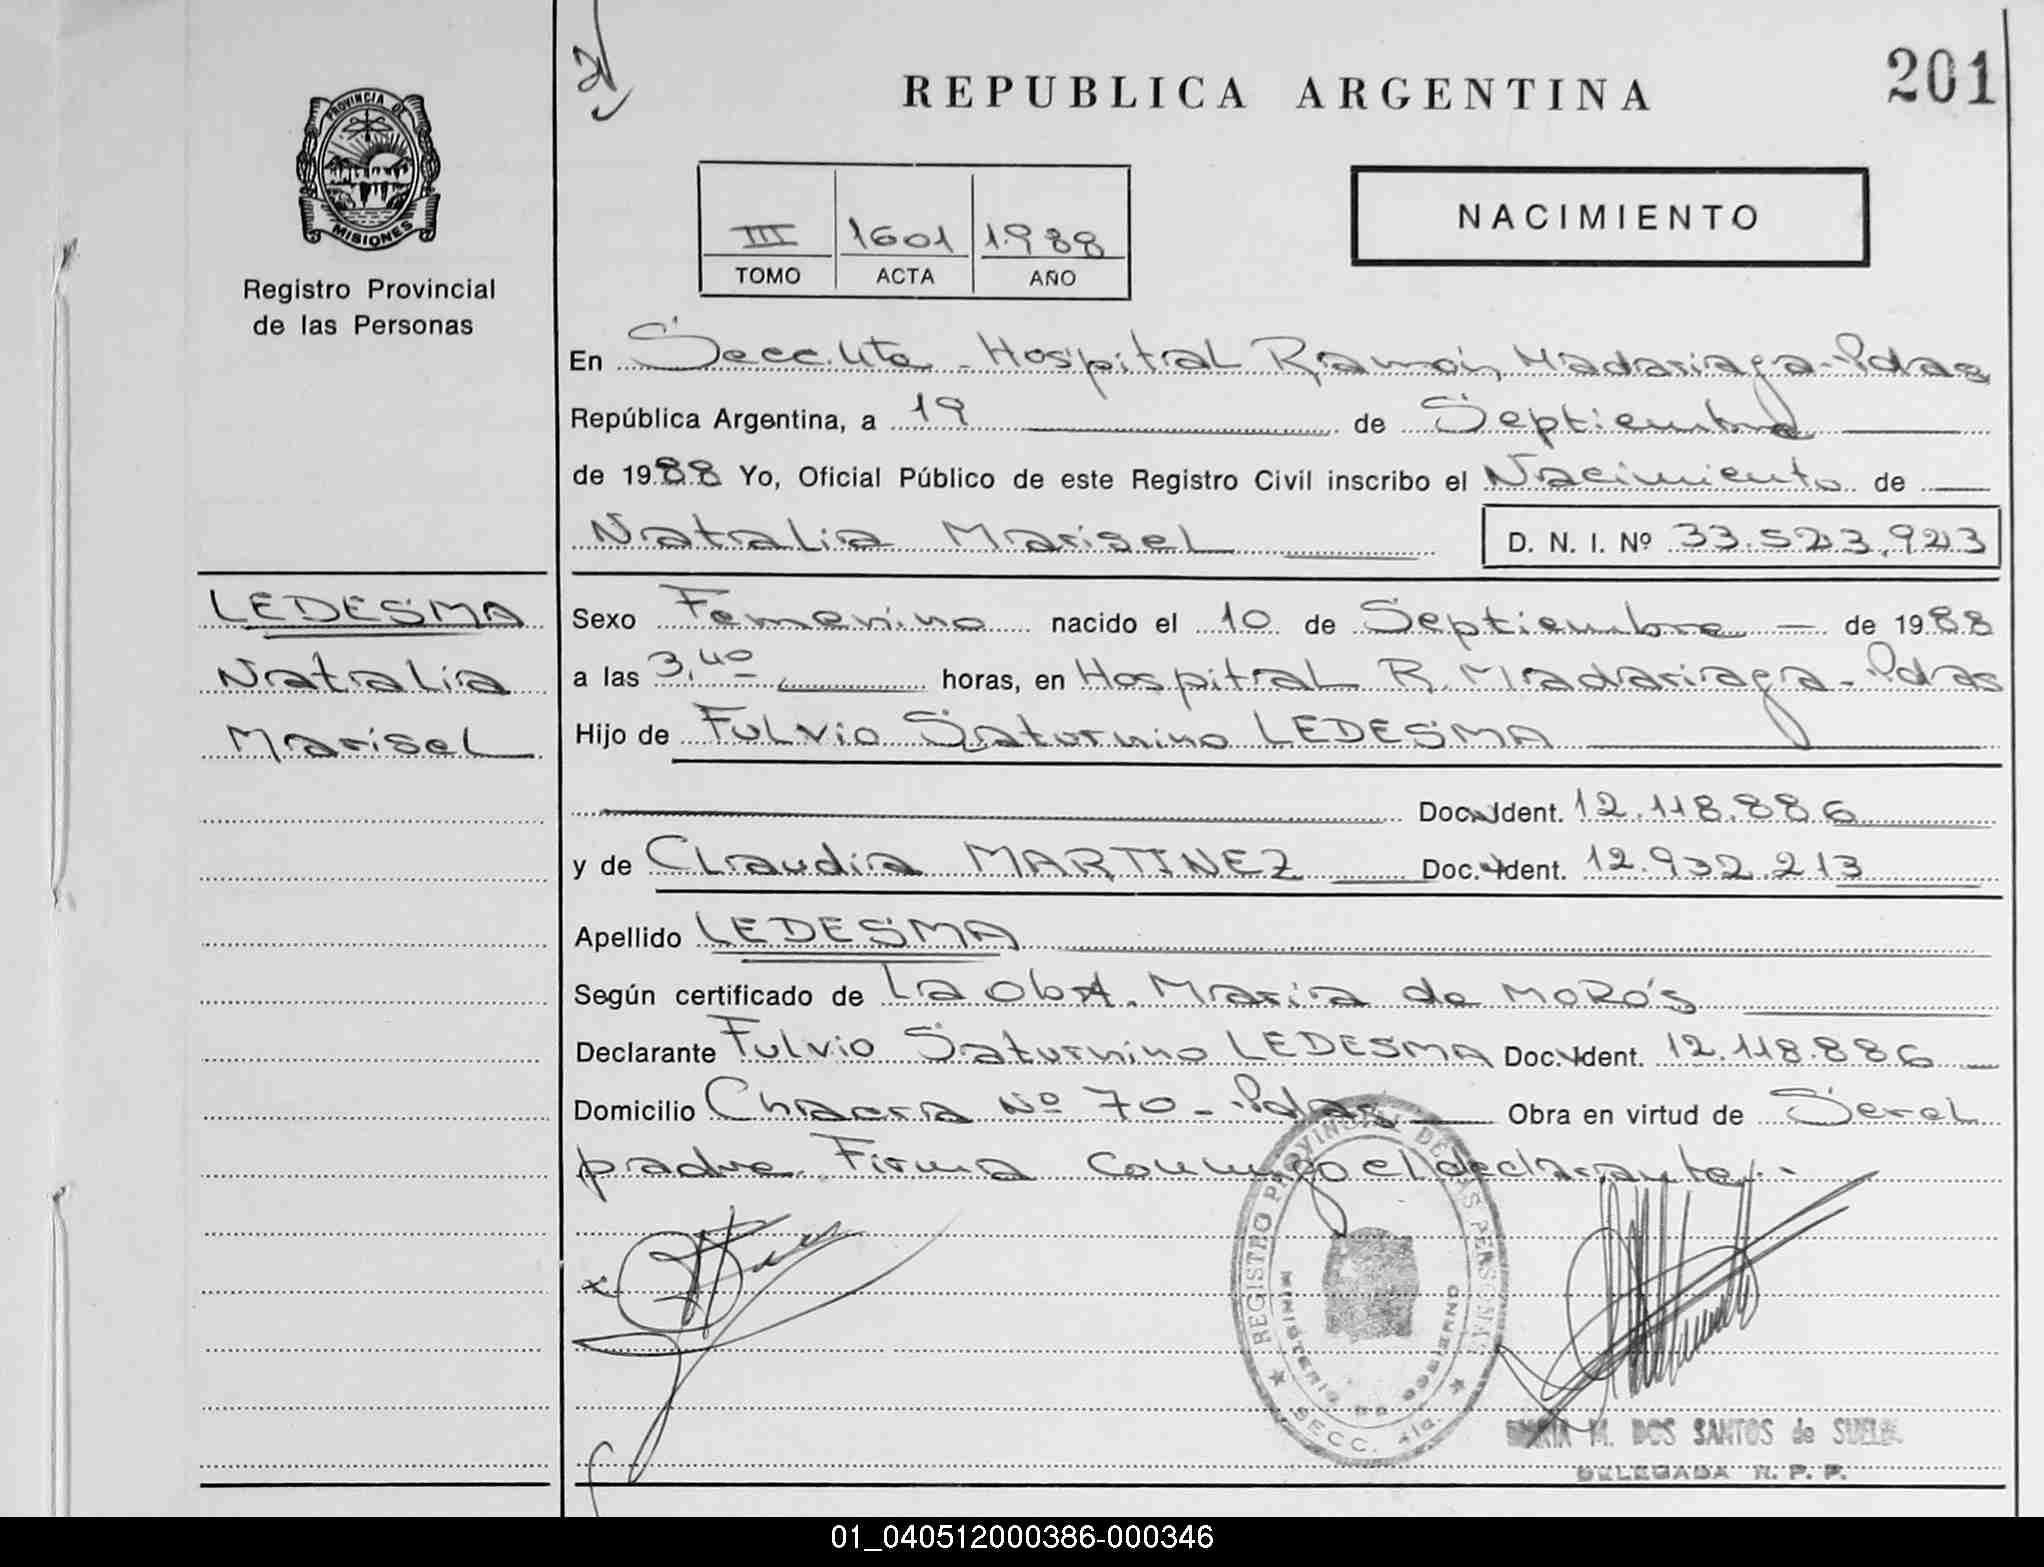 201
REPUBLICA ARGENTINA
PROVINCIA DE
MISIONES
Registro Provincial
de las Personas
III 1601 1988
TOMO ACTA AÑO
NACIMIENTO
En Secc. 4ta - Hospital Ramón Madariaga - Pdas
República Argentina, a 19 de Septiembre
de 1988 Yo, Oficial Público de este Registro Civil inscribo el Nacimiento de
Natalia Marisel D. N. I. Nº 33.523.923
LEDESMA
Natalia
Marisel
Sexo Femenino nacido el 10 de Septiembre - de 1988
a las 3,40 horas, en Hospital R. Madariaga - Pdas
Hijo de Fulvio Saturnino LEDESMA
Doc. Ident. 12.118.886
y de Claudia MARTINEZ Doc. Ident. 12.932.213
Apellido LEDESMA
Según certificado de La Obst. Maria de MoRós
Declarante Fulvio Saturnino LEDESMA Doc. Ident. 12.118.886
Domicilio Chacra Nº 70 - Pdas Obra en virtud de Serel
padre. Firma conmigo el declarante.-
REGISTRO PROVINCIAL DE LAS PERSONAS
MINISTERIO DE GOBIERNO
SECC. 4ta.
MARIA M. DOS SANTOS de SUELA
DELEGADA R. P. P.
01_040512000386-000346